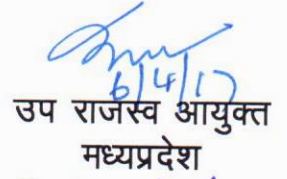 6/4/17
उप राजस्व आयुक्त
मध्यप्रदेश